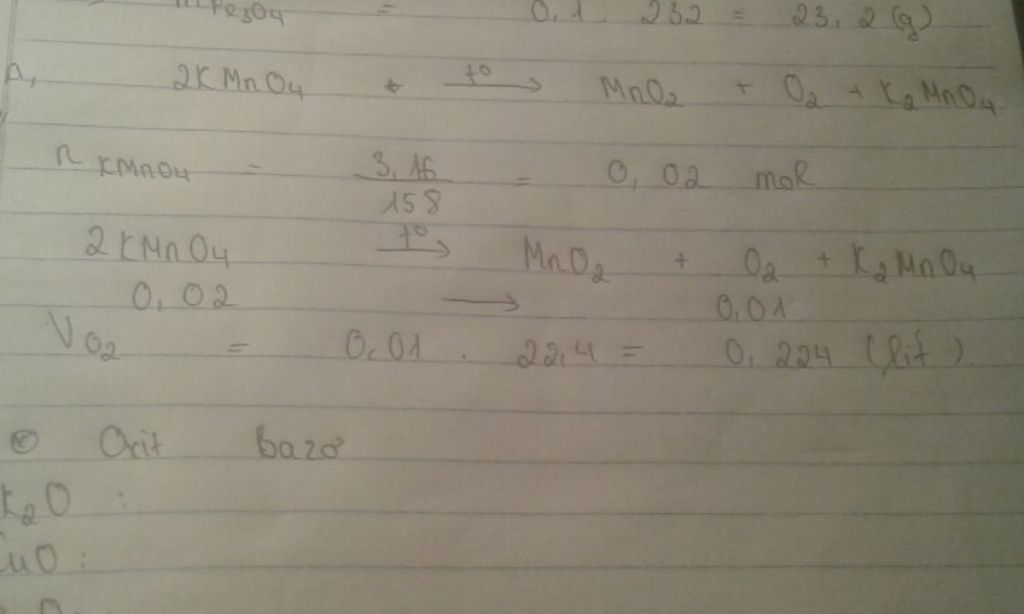 mFe3O4 = 0,1 . 232 = 23,2 (g)
a, 2KMnO4 t° → MnO2 + O2 + K2MnO4
n KMnO4 = 3,16 / 158 = 0,02 mol
2KMnO4 t° → MnO2 + O2 + K2MnO4
0,02 → 0,01
VO2 = 0,01 . 22,4 = 0,224 (lit)
Oxit Bazơ
K2O :
CuO :